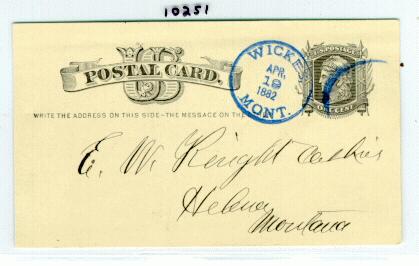 10251
U.S. POSTAGE
ONE CENT
US
POSTAL CARD.
WICKES
APR.
19
1882
MONT.
WRITE THE ADDRESS ON THIS SIDE—THE MESSAGE ON THE
E. W. Knight Cashier
Helena
Montana